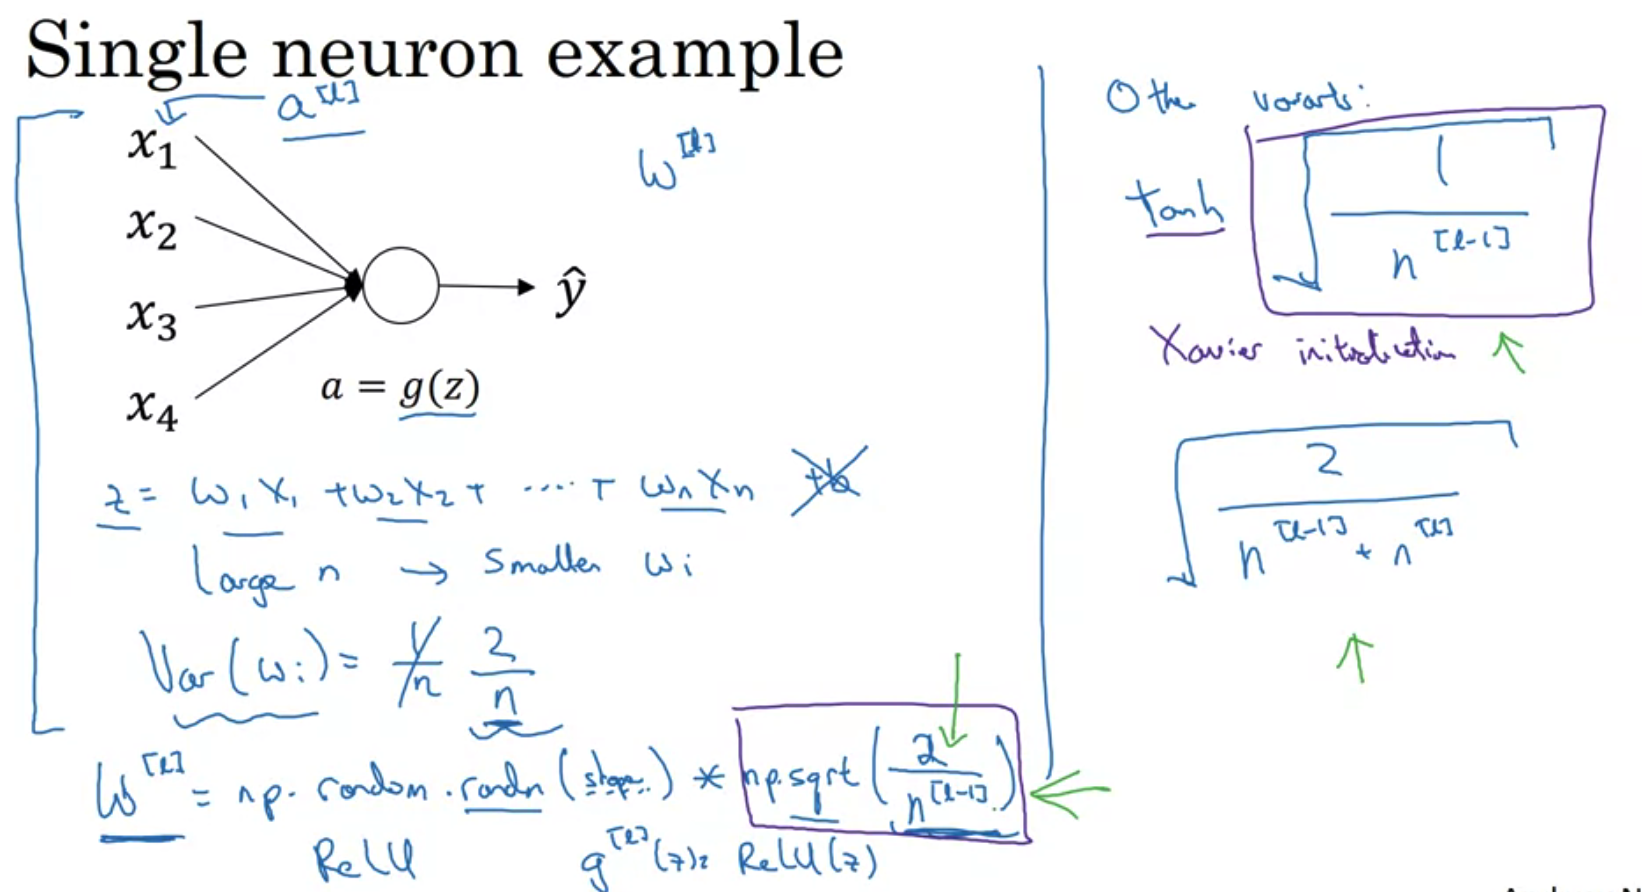 Single neuron example
a^[l]
x₁
x₂
x₃
x₄
ŷ
a = g(z)
W^[l]
z = w₁x₁ + w₂x₂ + ····· + wₙxₙ +b
Large n → Smaller wᵢ
Var(wᵢ) = 1/n 2/n
W^[l] = np.random.randn(shape) * np.sqrt(2/n^[l-1])
ReLU g^[l](z) = ReLU(z)
Other variants:
tanh √(1/n^[l-1])
Xavier initialization
√(2/(n^[l-1] + n^[l]))